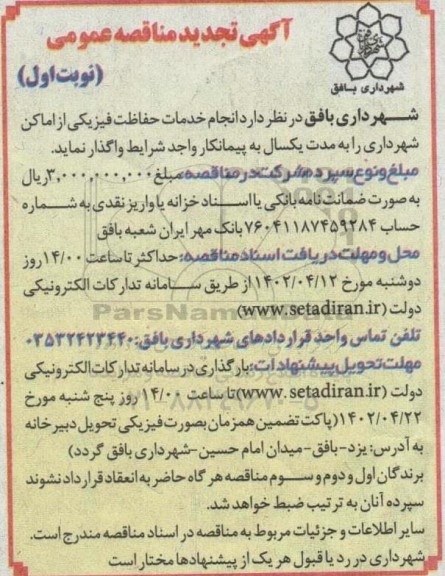 آگهی تجدید مناقصه عمومی
(نوبت اول)
شهرداری بافق
شهرداری بافق در نظر دارد انجام خدمات حفاظت فیزیکی از اماکن
شهرداری را به مدت یکسال به پیمانکار واجد شرایط واگذار نماید.
مبلغ و نوع سپرده شرکت در مناقصه: مبلغ ۳,۰۰۰,۰۰۰,۰۰۰ ریال
به صورت ضمانت نامه بانکی یا اسناد خزانه یا واریز نقدی به شماره
حساب ۷۶۰۴۱۱۸۷۴۵۹۲۸۴ بانک مهر ایران شعبه بافق
محل و مهلت دریافت اسناد مناقصه: حداکثر تا ساعت ۱۴/۰۰ روز
دوشنبه مورخ ۱۴۰۲/۰۴/۱۲ از طریق سامانه تدارکات الکترونیکی
دولت (www.setadiran.ir)
ParsNamadData
تلفن تماس واحد قراردادهای شهرداری بافق: ۰۳۵۳۲۴۲۳۴۴۰
مهلت تحویل پیشنهادات: بارگذاری در سامانه تدارکات الکترونیکی
دولت (www.setadiran.ir) تا ساعت ۱۴/۰۰ روز پنج شنبه مورخ
۱۴۰۲/۰۴/۲۲ (پاکت تضمین همزمان بصورت فیزیکی تحویل دبیرخانه
به آدرس: یزد-بافق-میدان امام حسین-شهرداری بافق گردد)
برندگان اول و دوم و سوم مناقصه هرگاه حاضر به انعقاد قرارداد نشوند
سپرده آنان به ترتیب ضبط خواهد شد.
سایر اطلاعات و جزئیات مربوط به مناقصه در اسناد مناقصه مندرج است.
شهرداری در رد یا قبول هر یک از پیشنهادها مختار است